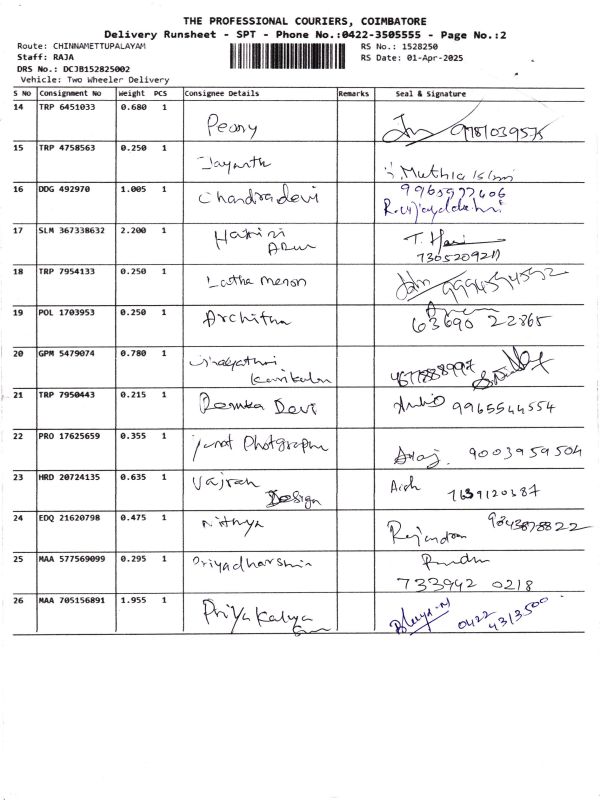 THE PROFESSIONAL COURIERS, COIMBATORE
Delivery Runsheet - SPT - Phone No.:0422-3505555 - Page No.:2
Route: CHINNAMETTUPALAYAM RS No.: 1528250
Staff: RAJA RS Date: 01-Apr-2025
DRS No.: DCJB152825002
Vehicle: Two Wheeler Delivery
S No Consignment No Weight PCS Consignee Details Remarks Seal & Signature
14 TRP 6451033 0.680 1
Peony 9781039575
15 TRP 4758563 0.250 1
Jayanth
16 DDG 492970 1.005 1 9965977606
Chandradevi
17 SLM 367338632 2.200 1
Harini T. Hari
Arun
18 TRP 7954133 0.250 1
Latha menon
19 POL 1703953 0.250 1
Architha 63690 22865
20 GPM 5479074 0.780 1
21 TRP 7950443 0.215 1
Renuka Devi 9965544554
22 PRO 17625659 0.355 1
9003959504
23 HRD 20724135 0.635 1
Vajrah
Design
24 EDQ 21620798 0.475 1
Nithya Rajendran
25 MAA 577569099 0.295 1
Priyadharshini
733942 0218
26 MAA 705156891 1.955 1
Priya Kalya 0422
4313500